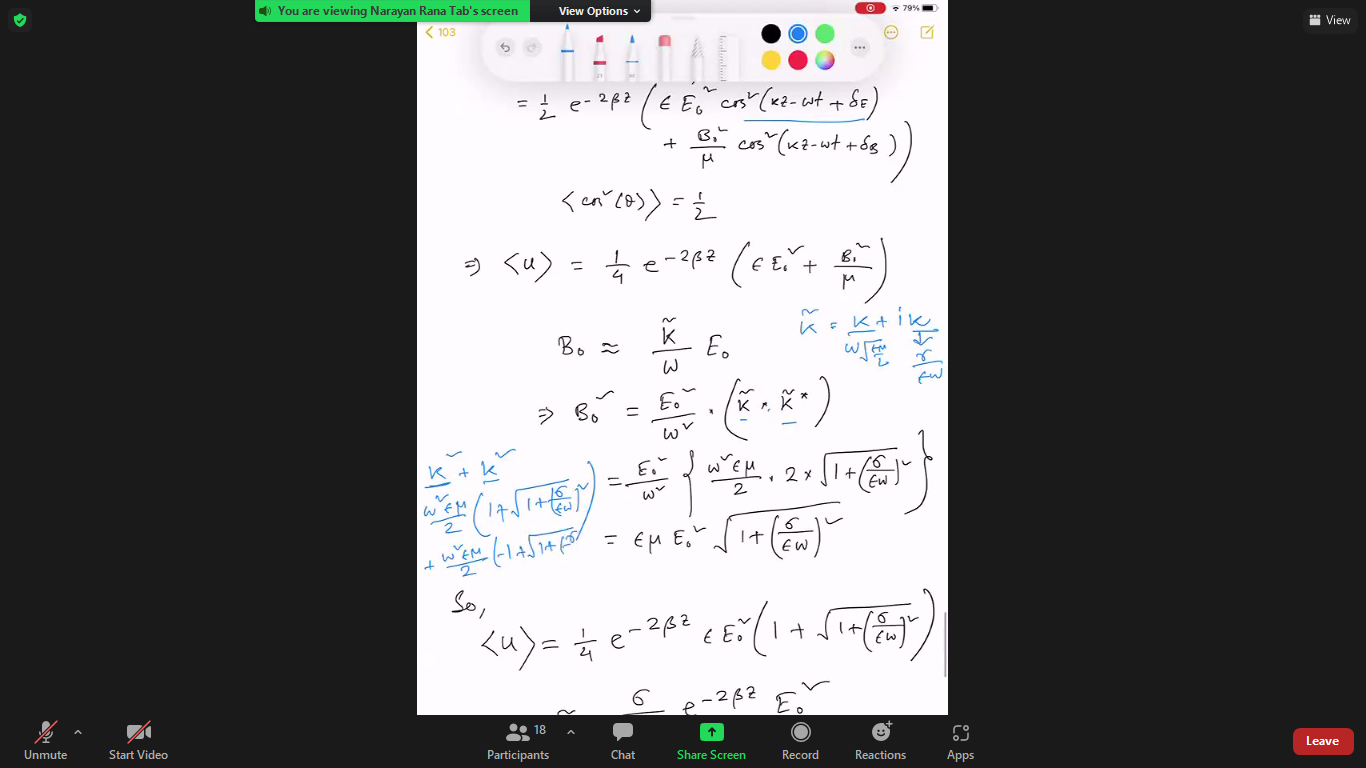 You are viewing Narayan Rana Tab's screen
View Options
79%
View
103
= 1/2 e^{-2βz} ( ϵ E₀² cos²(kz-wt + δ_E)
+ B₀²/μ cos²(kz-wt + δ_B) )
⟨cos²(θ)⟩ = 1/2
⇒ ⟨u⟩ = 1/4 e^{-2βz} ( ϵ E₀² + B₀²/μ )
B₀ ≈ k̃/w E₀
k̃ = k + i k
w√(ϵμ/2)
⇒ B₀² = E₀²/w² · ( k̃ · k̃* )
k² + k²
= E₀²/w² { w²ϵμ/2 · 2 × √(1+(σ/ϵw)²) }
w²ϵμ/2 ( 1+√(1+(σ/ϵw)²) )
+ w²ϵμ/2 (-1+√(1+(σ
= ϵμ E₀² √(1+(σ/ϵw)²)
So,
⟨u⟩ = 1/4 e^{-2βz} ϵ E₀² ( 1 + √(1+(σ/ϵw)²) )
σ e^{-2βz} E₀²
Unmute
Start Video
Participants
18
Chat
Share Screen
Record
Reactions
Apps
Leave